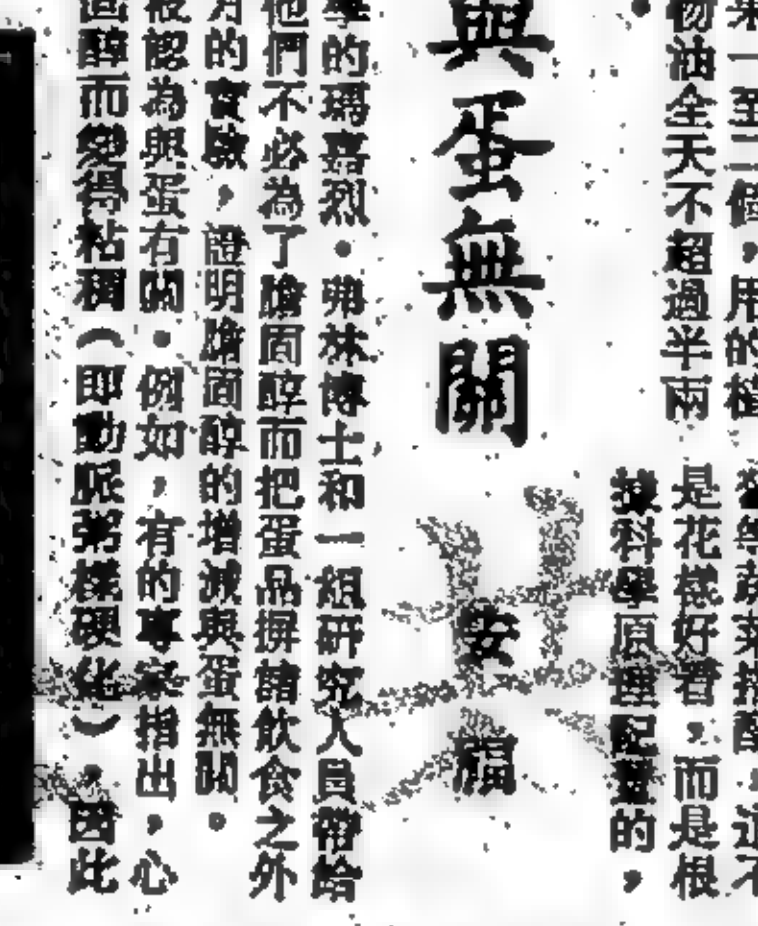 果一至二個，用的植
物油全天不超過半兩
等蔬菜搭配，這不
是花樣好看，而是根
據科學原理配置的，
與蛋無關
安福
學的瑪嘉烈．弗林博士和一組研究人員帶給
他們不必為了膽固醇而把蛋品摒諸飲食之外
月的實驗，證明膽固醇的增減與蛋無關。
被認為與蛋有關。例如，有的專家指出，心
固醇而變得粘稠（即動脈粥樣硬化）。因此